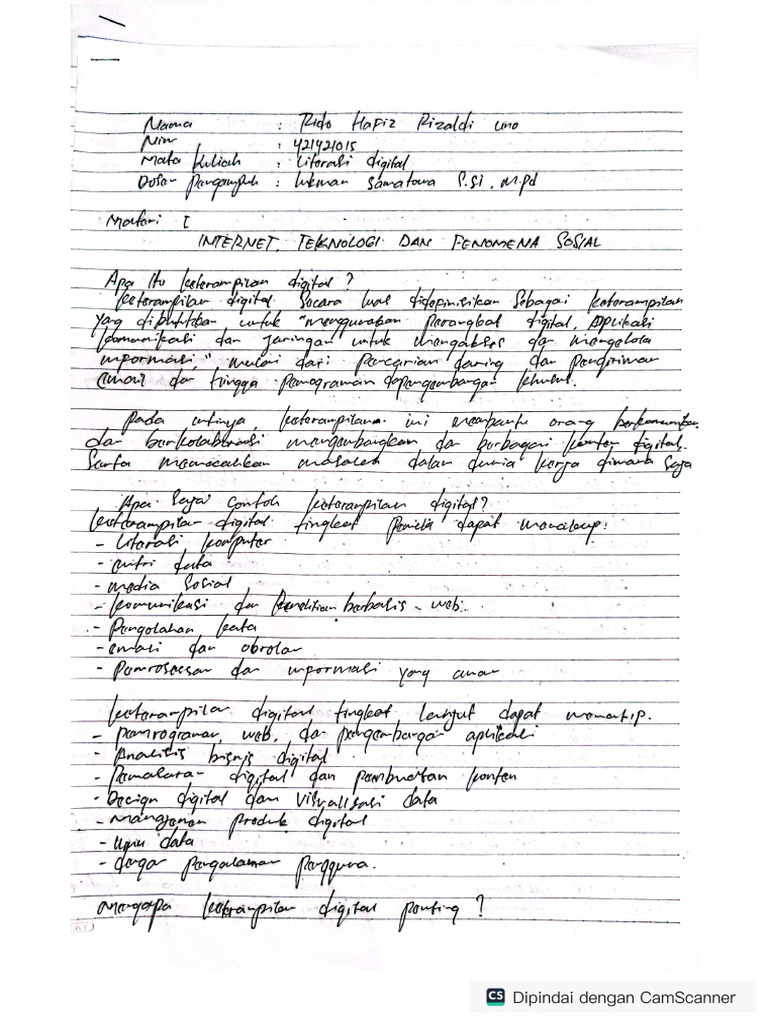 Nama : Rido Hafiz Rizaldi uno
Nim : 421421015
Mata kuliah : Literasi digital
Dosen Pengampuh : lukman samatowa S.si, M.pd
Materi I
INTERNET, TEKNOLOGI DAN FENOMENA SOSIAL
Apa itu keterampilan digital ?
keterampilan digital secara luas didefinisikan sebagai keterampilan
yang dibutuhkan untuk "menggunakan perangkat digital, Aplikasi
komunikasi dan jaringan untuk mengakses dan mengelola
informasi," mulai dari pencarian daring dan pengiriman
email dan hingga pemograman khusus.
Pada intinya, ini membantu orang berkomunikasi
dan berkolaborasi mengembangkan dan berbagai konten digital.
Serta memecahkan masalah dalam dunia kerja dimana saja
Apa saja contoh keterampilan digital?
keterampilan digital tingkat dapat mencakup:
- Literasi komputer
- entri data
- media sosial
- komunikasi dan Penelitian berbasis - web.
- Pengolahan kata
- dan obrolan
- dan informasi yang aman
keterampilan digital tingkat lanjut dapat
- pemrograman, web, dan pengembangan aplikasi
- Analisis bisnis digital
- Pemasaran digital dan pembuatan konten
- Design digital dan visualisasi data
- manajemen produk digital
- data
- pengalaman pengguna.
mengapa keterampilan digital penting ?
CS Dipindai dengan CamScanner